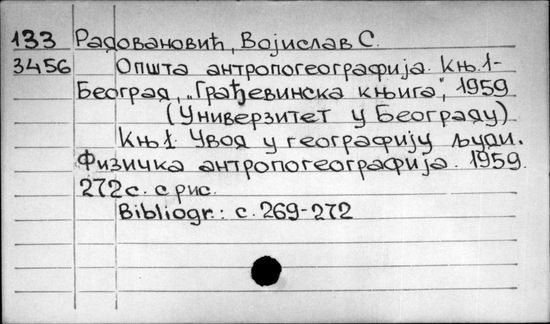 133 Радовановић, Војислав С.
3456 Општа антропогеографија. Књ. 1-
Београд, „Грађевинска књига", 1959
(Универзитет у Београду)
Књ 1. Увод у географију људи.
Физичка антропогеографија. 1959.
272 с. с рис.
Bibliogr.: с. 269-272